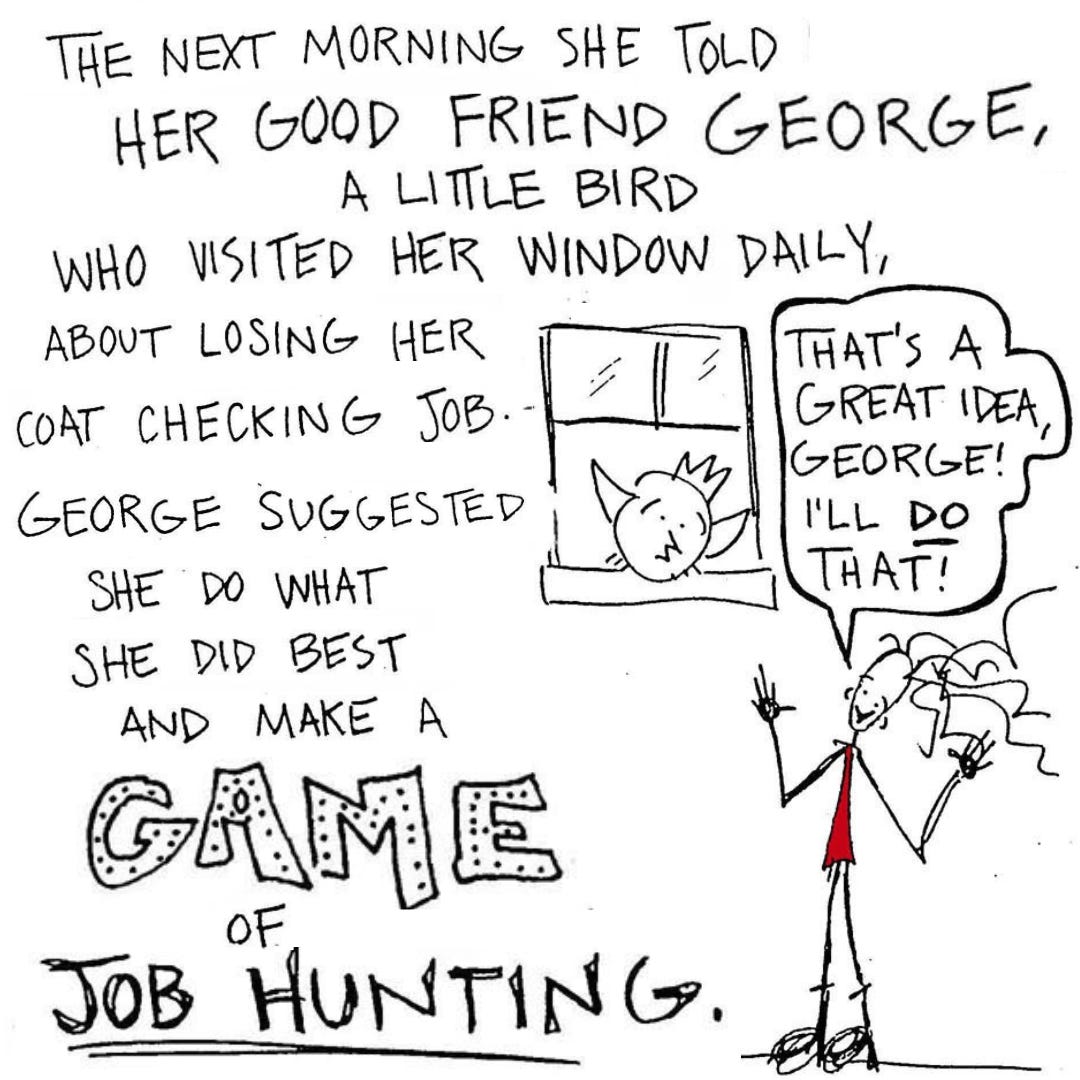 THE NEXT MORNING SHE TOLD
HER GOOD FRIEND GEORGE,
A LITTLE BIRD
WHO VISITED HER WINDOW DAILY,
ABOUT LOSING HER
COAT CHECKING JOB.
GEORGE SUGGESTED
SHE DO WHAT
SHE DID BEST
AND MAKE A
GAME
OF
JOB HUNTING.
THAT'S A
GREAT IDEA,
GEORGE!
I'LL DO
THAT!